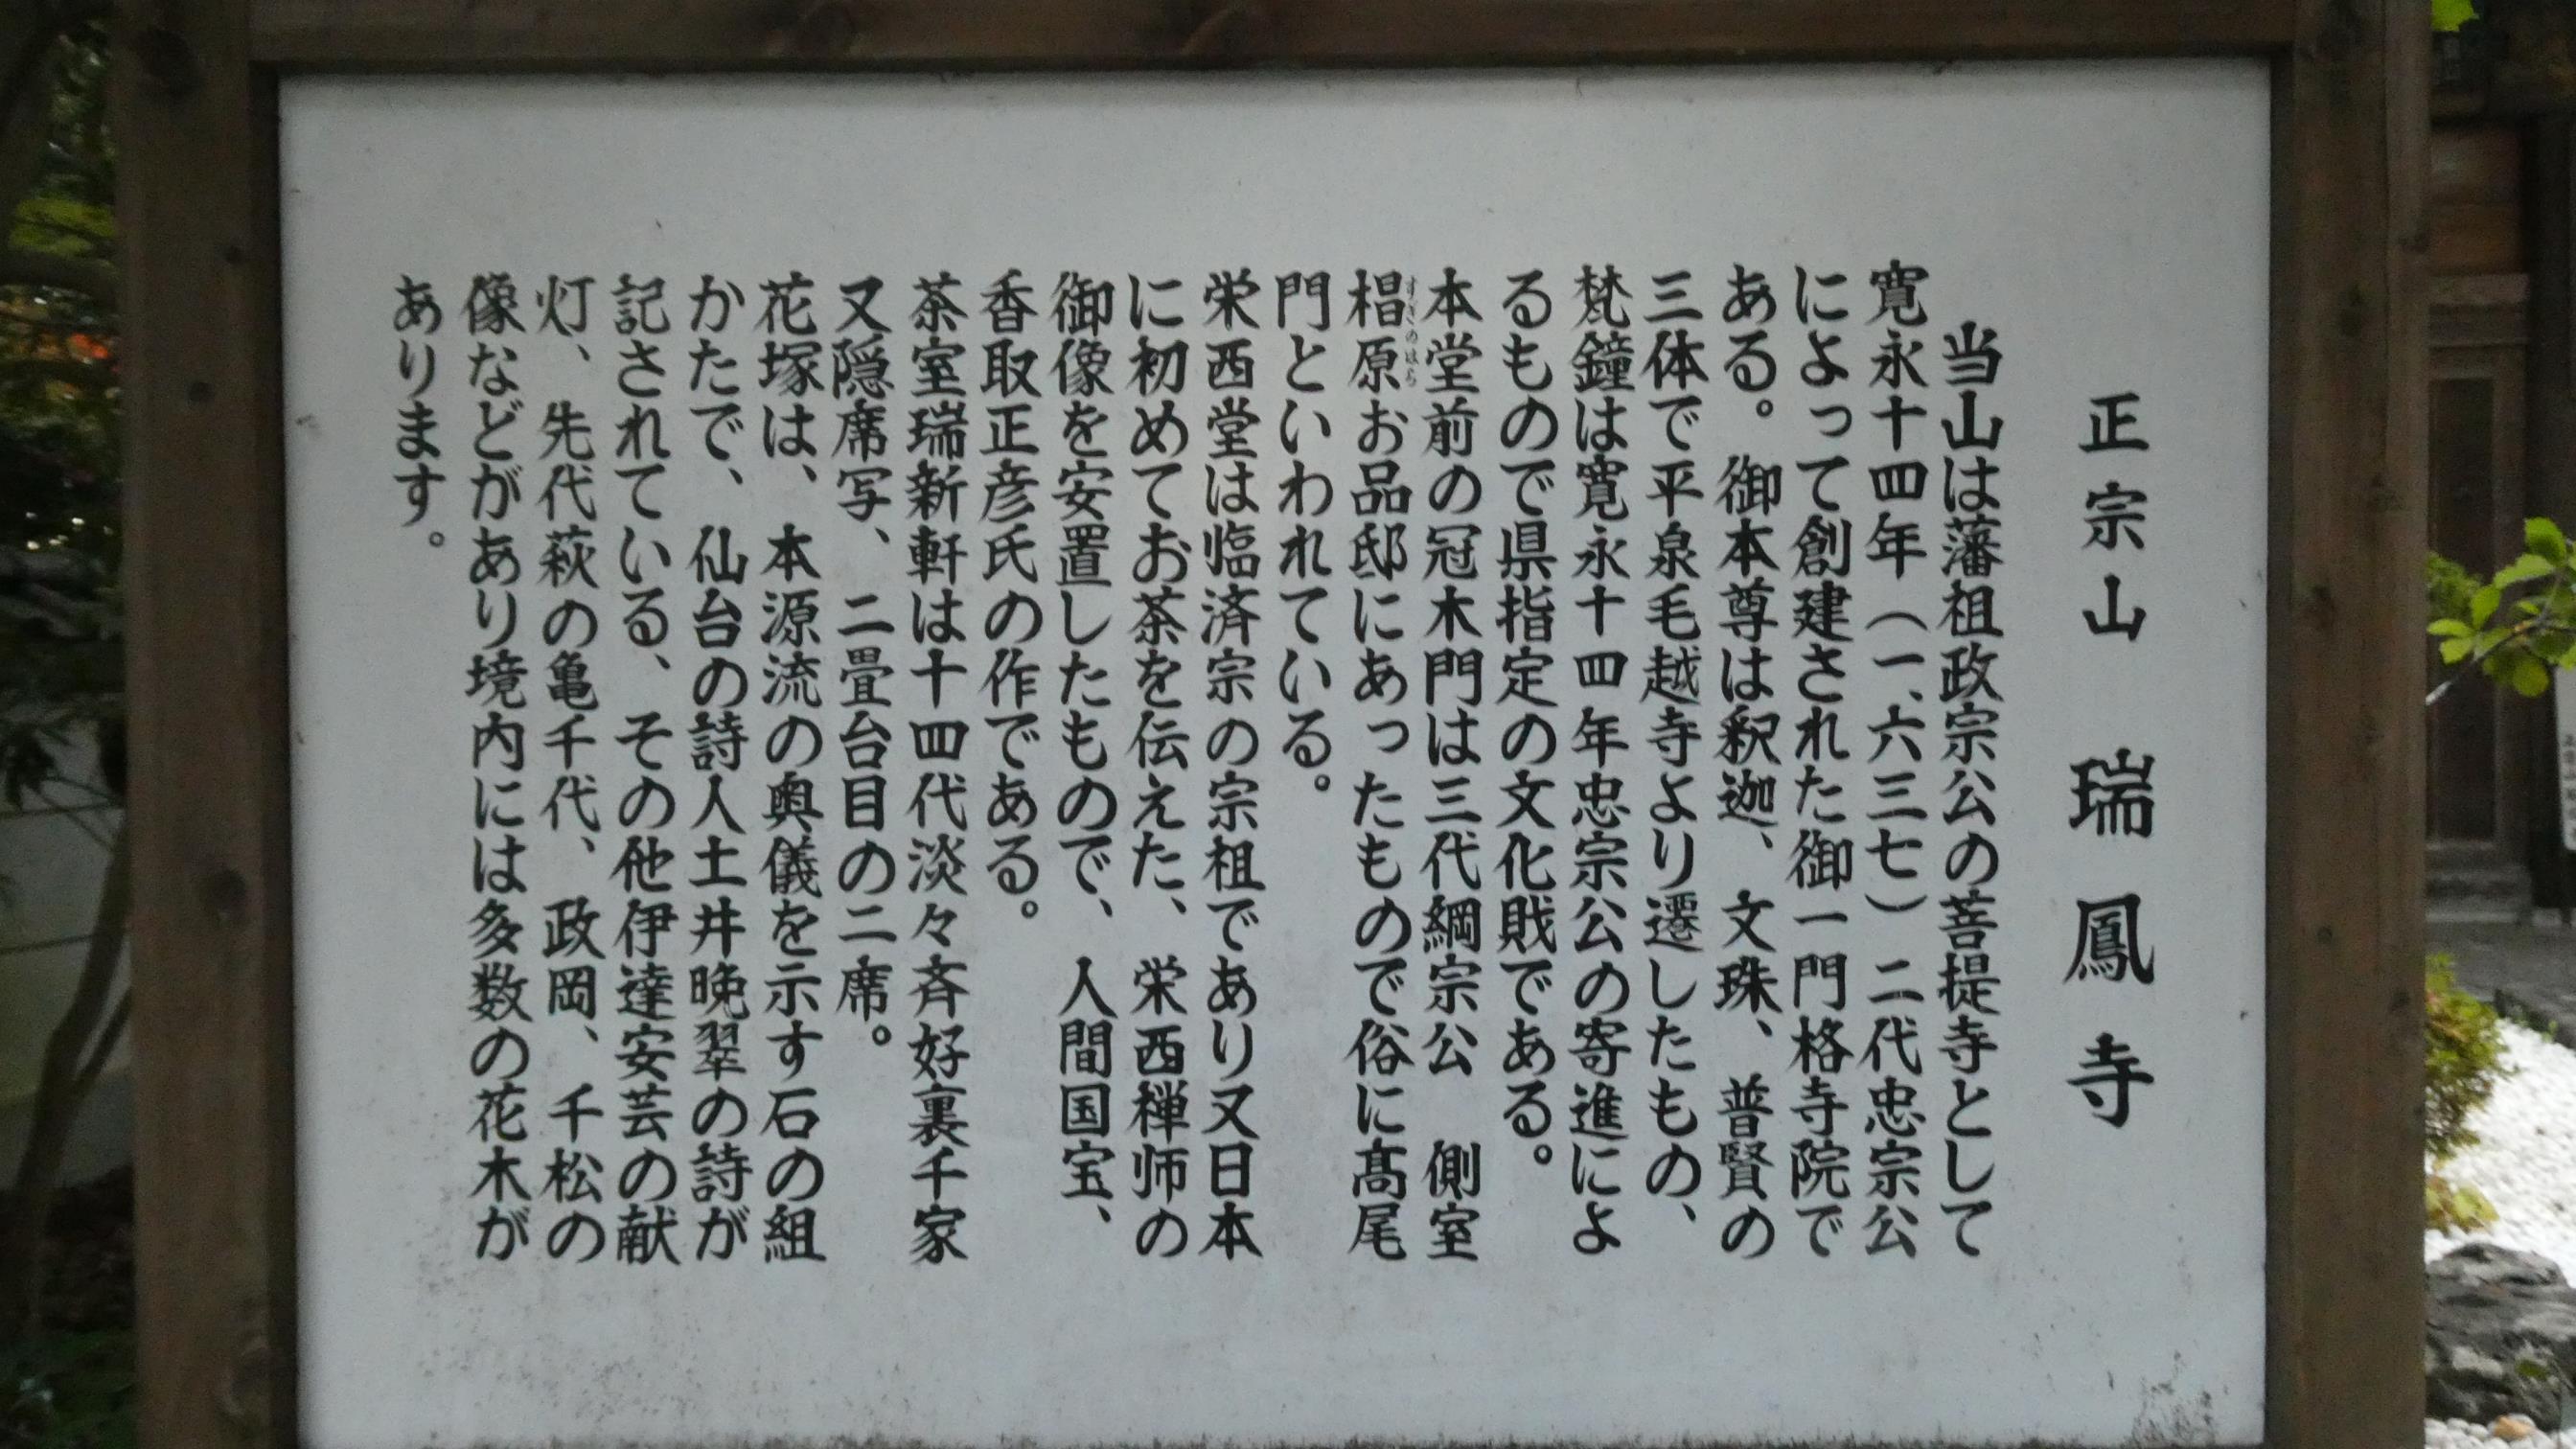 正宗山　瑞鳳寺
当山は藩祖政宗公の菩提寺として
寛永十四年（一、六三七）二代忠宗公
によって創建された御一門格寺院で
ある。御本尊は釈迦、文珠、普賢の
三体で平泉毛越寺より遷したもの、
梵鐘は寛永十四年忠宗公の寄進によ
るもので県指定の文化戝である。
本堂前の冠木門は三代綱宗公　側室
椙原お品邸にあったもので俗に髙尾
すぎのはら
門といわれている。
栄西堂は臨済宗の宗祖であり又日本
に初めてお茶を伝えた、栄西禅师の
御像を安置したもので、人間国宝、
香取正彦氏の作である。
茶室瑞新軒は十四代淡々斉好裏千家
又隠席写、二畳台目の二席。
花塚は、本源流の奥儀を示す石の組
かたで、仙台の詩人土井晩翠の詩が
記されている、その他伊達安芸の献
灯、先代萩の亀千代、政岡、千松の
像などがあり境内には多数の花木が
あります。